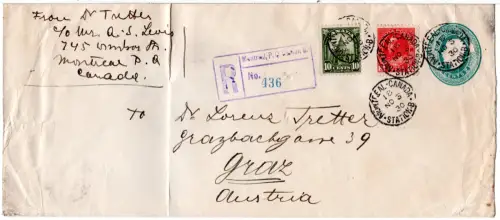 From Dr Tretter
c/o Mr. A. S. Levis
745
Montreal P. Q
Canada.
Montreal, P.Q.
R
No.
436
10 CENTS 10
MONTREAL-CANADA
STATION B
MONTREAL-CANADA
STATION B
TO
Dr Lorenz Tretter
Grazbachgasse 39
Graz
Austria